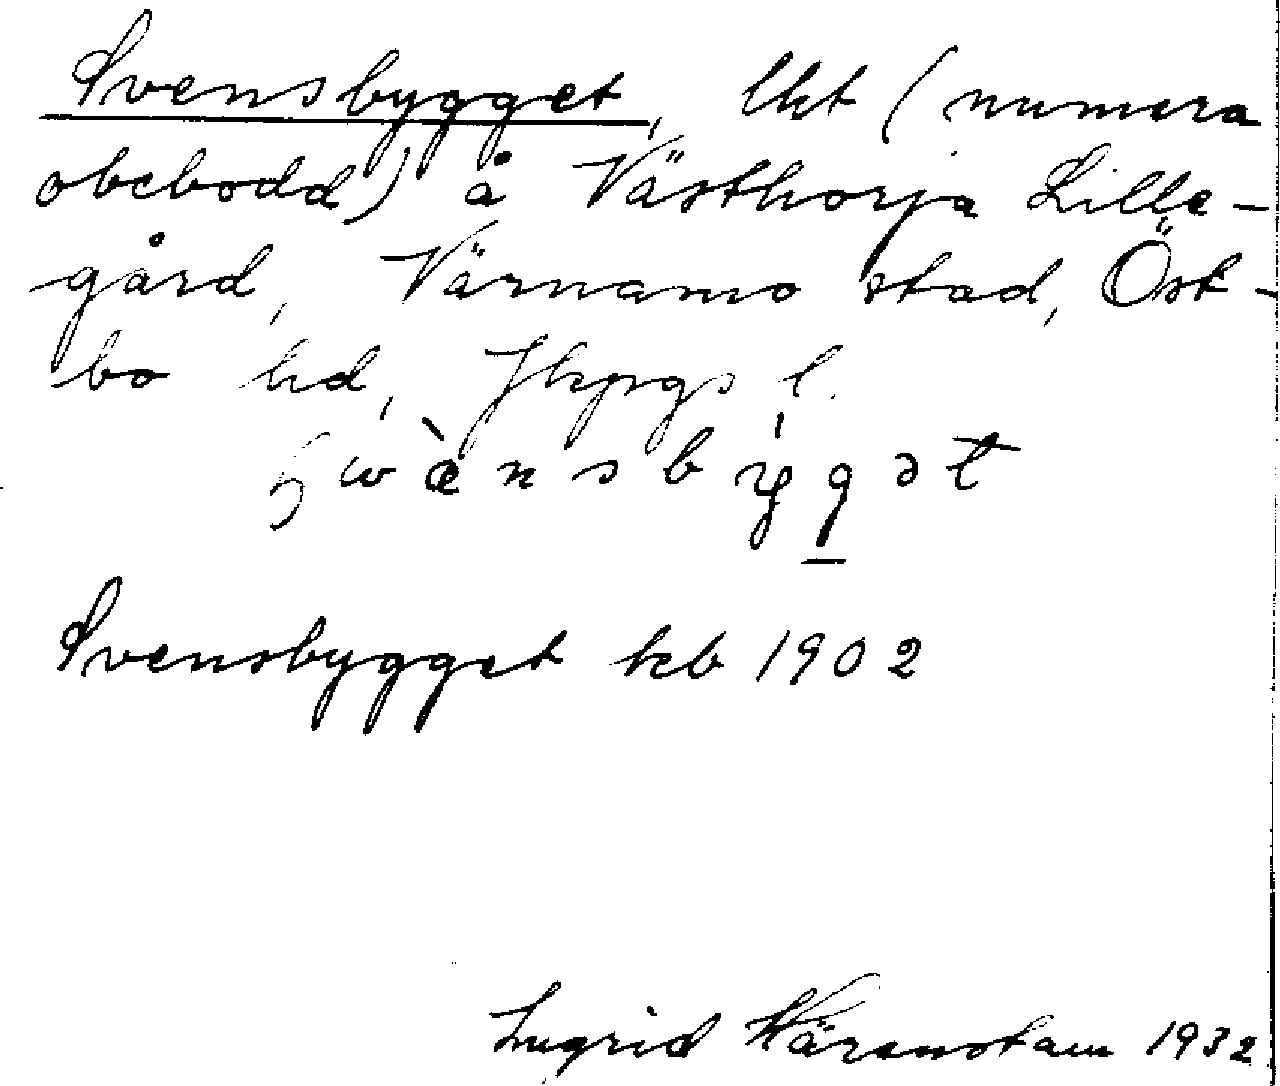 Svensbygget, lht (numera
obebodd) å Västhorja Lille-
gård, Värnamo stad, Öst-
bo hd, Jkpgs l.
swæ̀nsby̍gət
Svensbygget kb 1902
Ingrid Wärenstam 1932